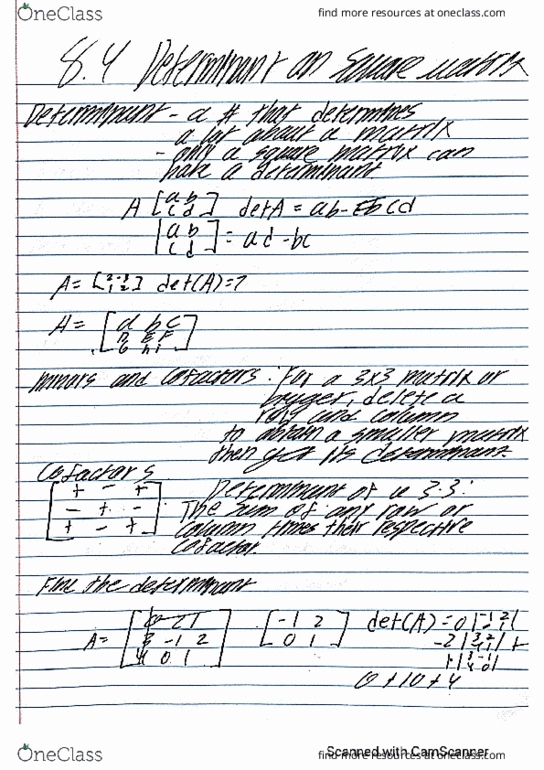 OneClass
find more resources at oneclass.com
8.4 Determinant on square matrix
Determinant - a # that determines
a lot about a matrix
- only a square matrix can
have a determinant
A [a b
c d] det A = ab - cd
[a b
c d] = ad - bc
A = [2 -3
1 2] det(A) = 7
A = [a b c
D E F
G h i]
minors and cofactors: For a 3x3 matrix or
bigger, delete a
row and column
to obtain a smaller matrix
then get its determinant
Cofactors
+ - +
- + -
+ - +
Determinant of a 3·3:
The sum of any row or
column times their respective
cofactor.
Find the determinant
A = [0 2 1
3 -1 2
4 0 1]
[-1 2
0 1]
det(A) = 0
-2
+1
0 + 10 + 4
Scanned with CamScanner
OneClass
find more resources at oneclass.com